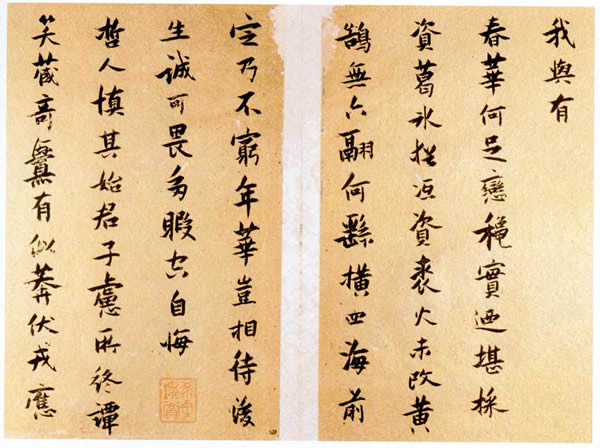 我與有
春華何足戀穠實迺堪採
資葛氷沍資裘火未改黃
鵠無六翮何繇橫四海前
定乃不窮年華豈相待後
生誠可畏多暇空自悔
哲人慎其始君子慮所終譚
笑藏奇釁有似莽伏戎應
四